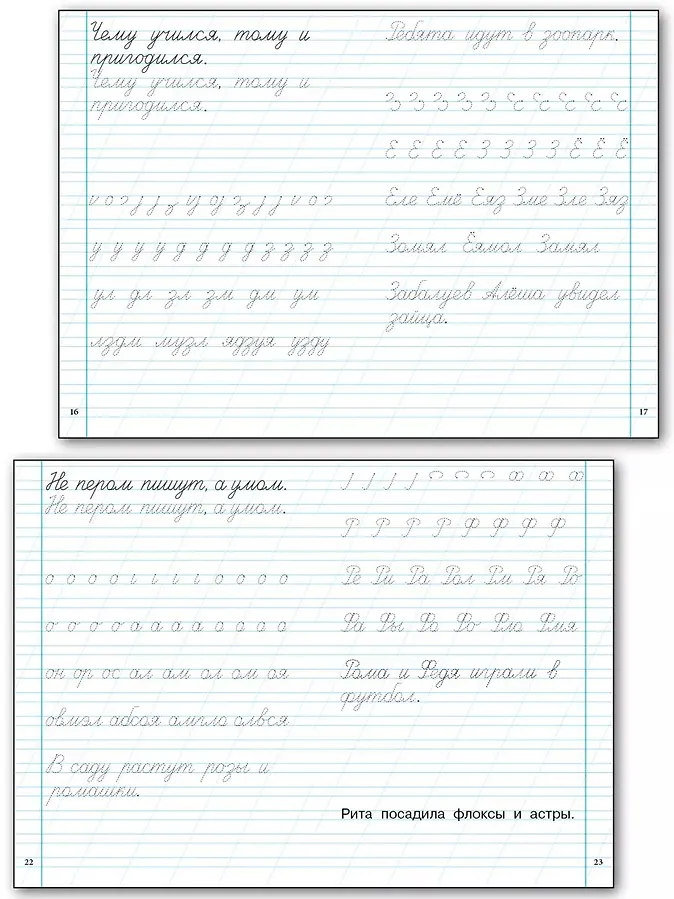 Чему учился, тому и
пригодился.
Чему учился, тому и
пригодился.
у у у у д д д д з з з з
ул дл зл зм дм ум
лздм музл ядзуя узду
16
Ребята идут в зоопарк.
Е Е Е Е З З З З Ё Ё Ё
Еле Емё Еяз Зме Зле Зяз
Зомял Еямол Замял
Забалуев Алёша увидел
зайца.
17
Не пером пишут, а умом.
Не пером пишут, а умом.
о о о о а а а а о о о о
он ор ос ал ам ол ом оя
овмэл абсоя амгло олвся
В саду растут розы и
ромашки.
22
Р Р Р Р Р Ф Ф Ф Ф
Ре Ри Ра Рол Рм Ря Ро
Фа Фы Фо Фло Фмя
Рома и Федя играли в
футбол.
Рита посадила флоксы и астры.
23